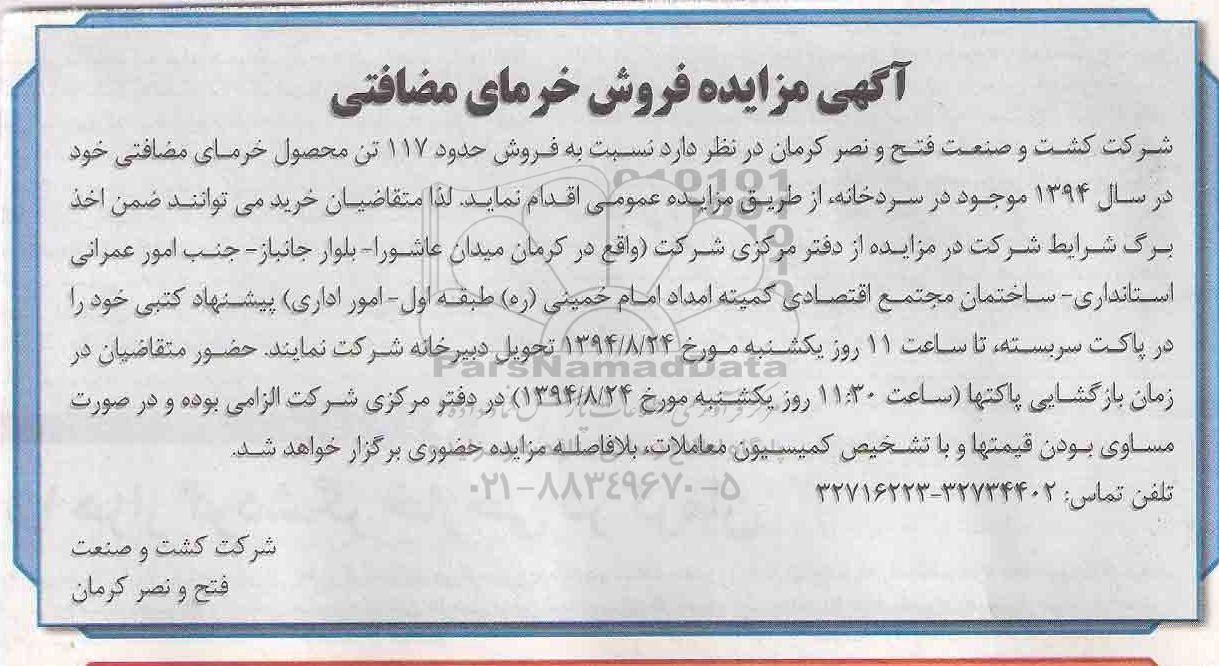 آگهی مزایده فروش خرمای مضافتی
شرکت کشت و صنعت فتح و نصر کرمان در نظر دارد نسبت به فروش حدود ۱۱۷ تن محصول خرمای مضافتی خود
در سال ۱۳۹۴ موجود در سردخانه، از طریق مزایده عمومی اقدام نماید. لذا متقاضیان خرید می توانند ضمن اخذ
برگ شرایط شرکت در مزایده از دفتر مرکزی شرکت (واقع در کرمان میدان عاشورا- بلوار جانباز- جنب امور عمرانی
استانداری- ساختمان مجتمع اقتصادی کمیته امداد امام خمینی (ره) طبقه اول- امور اداری) پیشنهاد کتبی خود را
در پاکت سربسته، تا ساعت ۱۱ روز یکشنبه مورخ ۱۳۹۴/۸/۲۴ تحویل دبیرخانه شرکت نمایند. حضور متقاضیان در
ParsNamadData
زمان بازگشایی پاکتها (ساعت ۱۱:۳۰ روز یکشنبه مورخ ۱۳۹۴/۸/۲۴) در دفتر مرکزی شرکت الزامی بوده و در صورت
مساوی بودن قیمتها و با تشخیص کمیسیون معاملات، بلافاصله مزایده حضوری برگزار خواهد شد.
۰۲۱-۸۸۳۴۹۶۷۰-۵
تلفن تماس: ۳۲۷۳۴۴۰۲-۳۲۷۱۶۲۲۳
شرکت کشت و صنعت
فتح و نصر کرمان